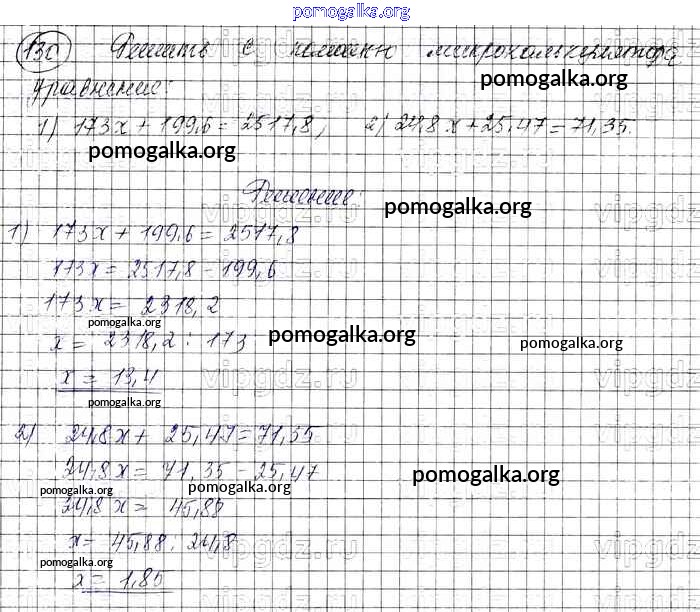 pomogalka.org
130 Решить с помощью микрокалькулятора
pomogalka.org
уравнение:
1) 173x + 199,6 = 2517,8, 2) 24,8x + 25,47 = 71,35.
pomogalka.org
Решение:
pomogalka.org
vipgdz.ru
1) 173x + 199,6 = 2517,8
173x = 2517,8 - 199,6
173x = 2318,2
pomogalka.org
x = 2318,2 : 173
pomogalka.org
pomogalka.org
x = 13,4
vipgdz.ru
pomogalka.org
2) 24,8x + 25,47 = 71,35
24,8x = 71,35 - 25,47
pomogalka.org
pomogalka.org
pomogalka.org
24,8x = 45,88
x = 45,88 : 24,8
vipgdz.ru
pomogalka.org
x = 1,85